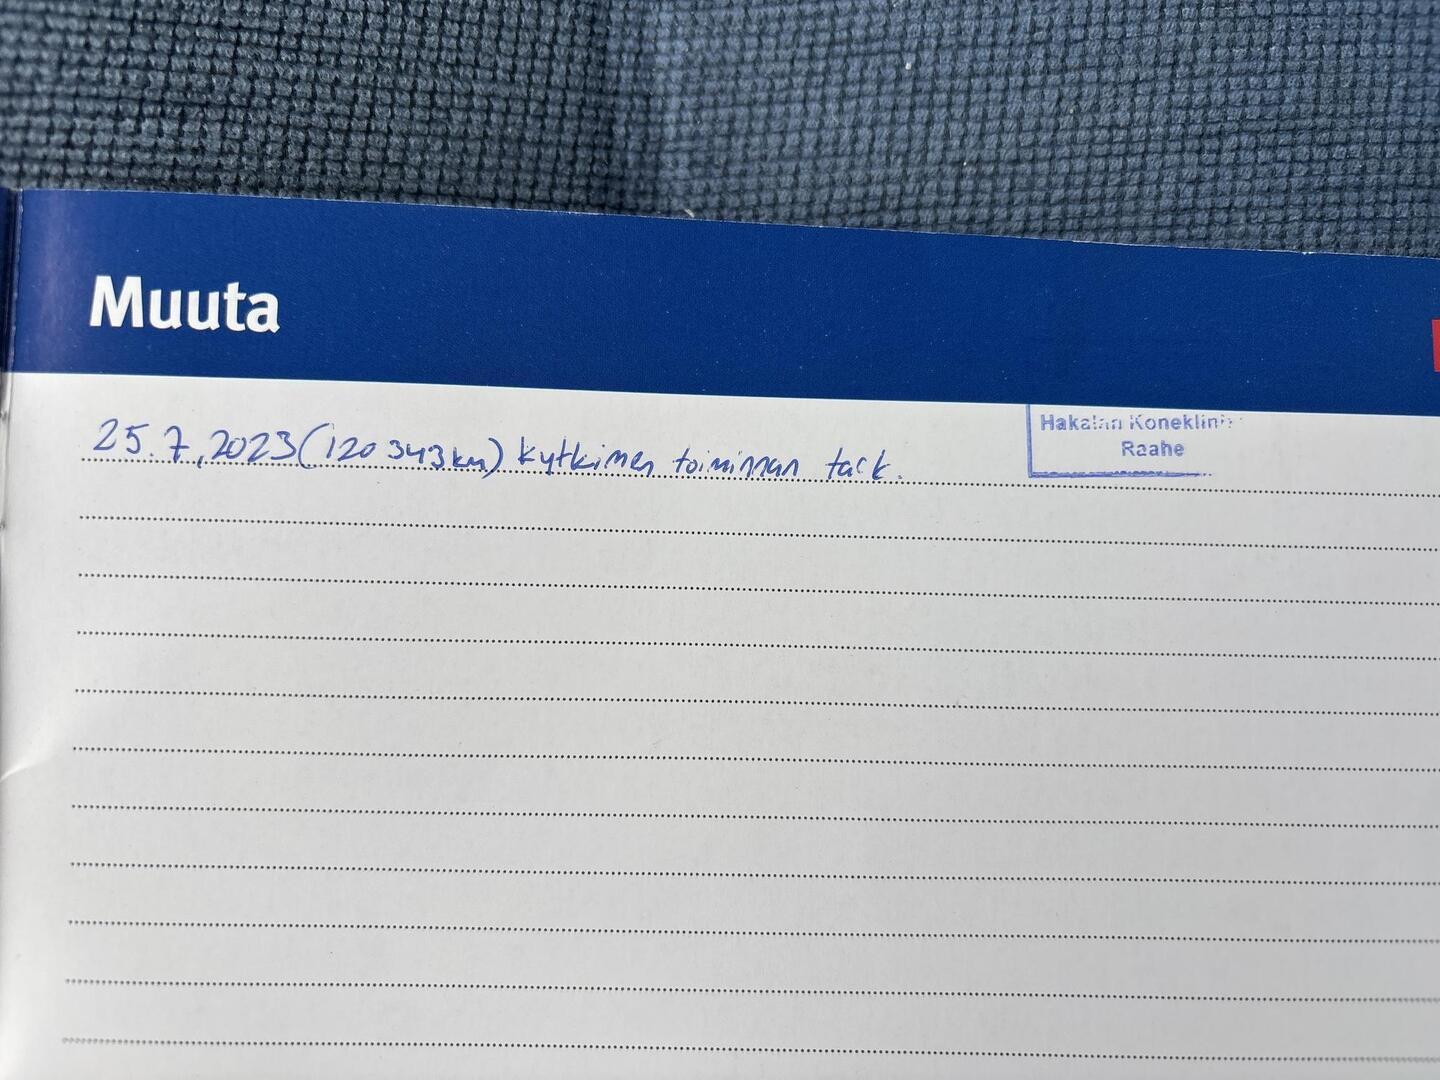 Muuta
25.7.2023 (120 343 km) kytkimen toiminnan tark.
Hakalan Koneklini
Raahe